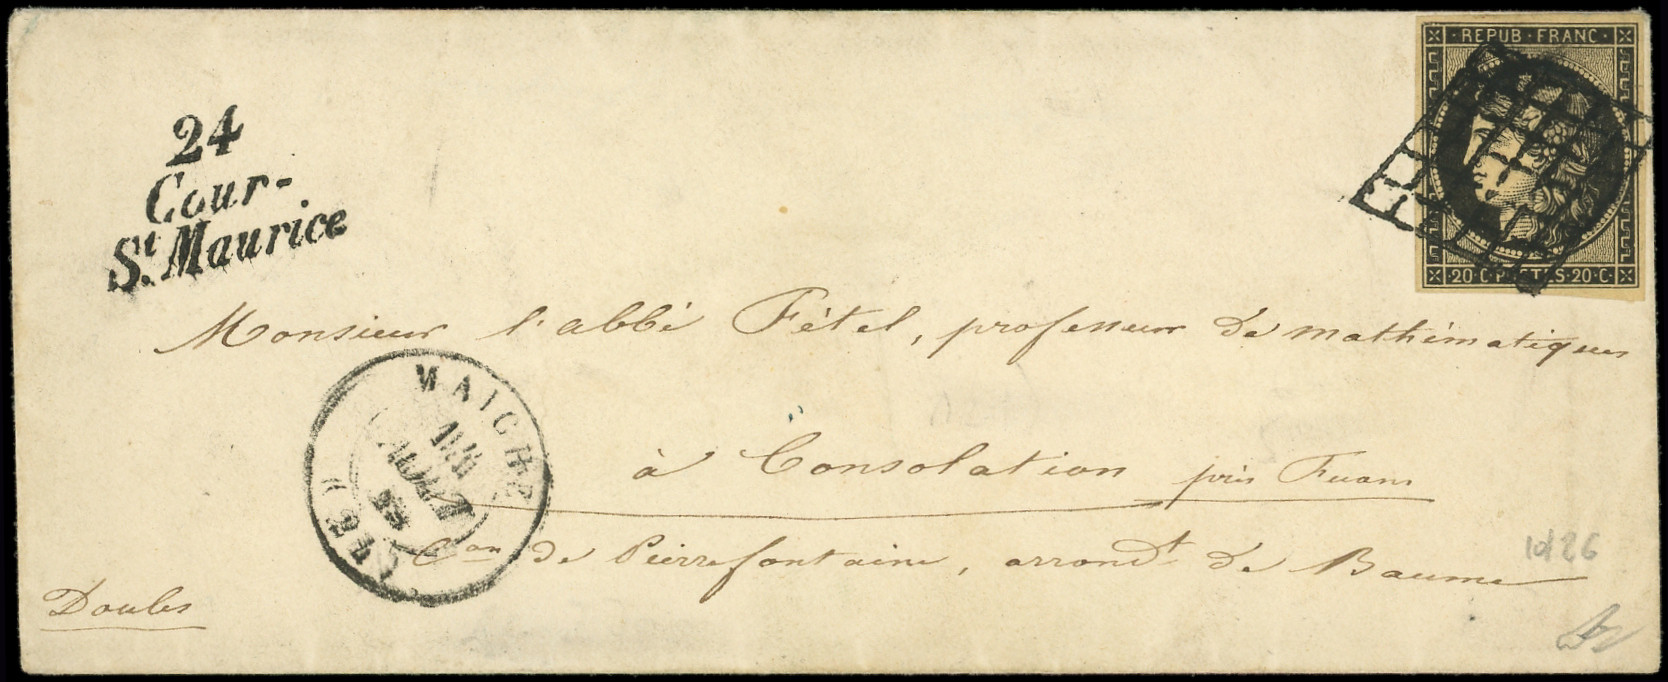 REPUB · FRANC ·
20 · C · POSTES · 20 · C ·
24
Cour-
St. Maurice
Monsieur l'abbé Fétel, professeur de mathématiques
MAICHE
à Consolation près Fuans
Con de Pierrefontaine, arrondt de Baume
Doubs